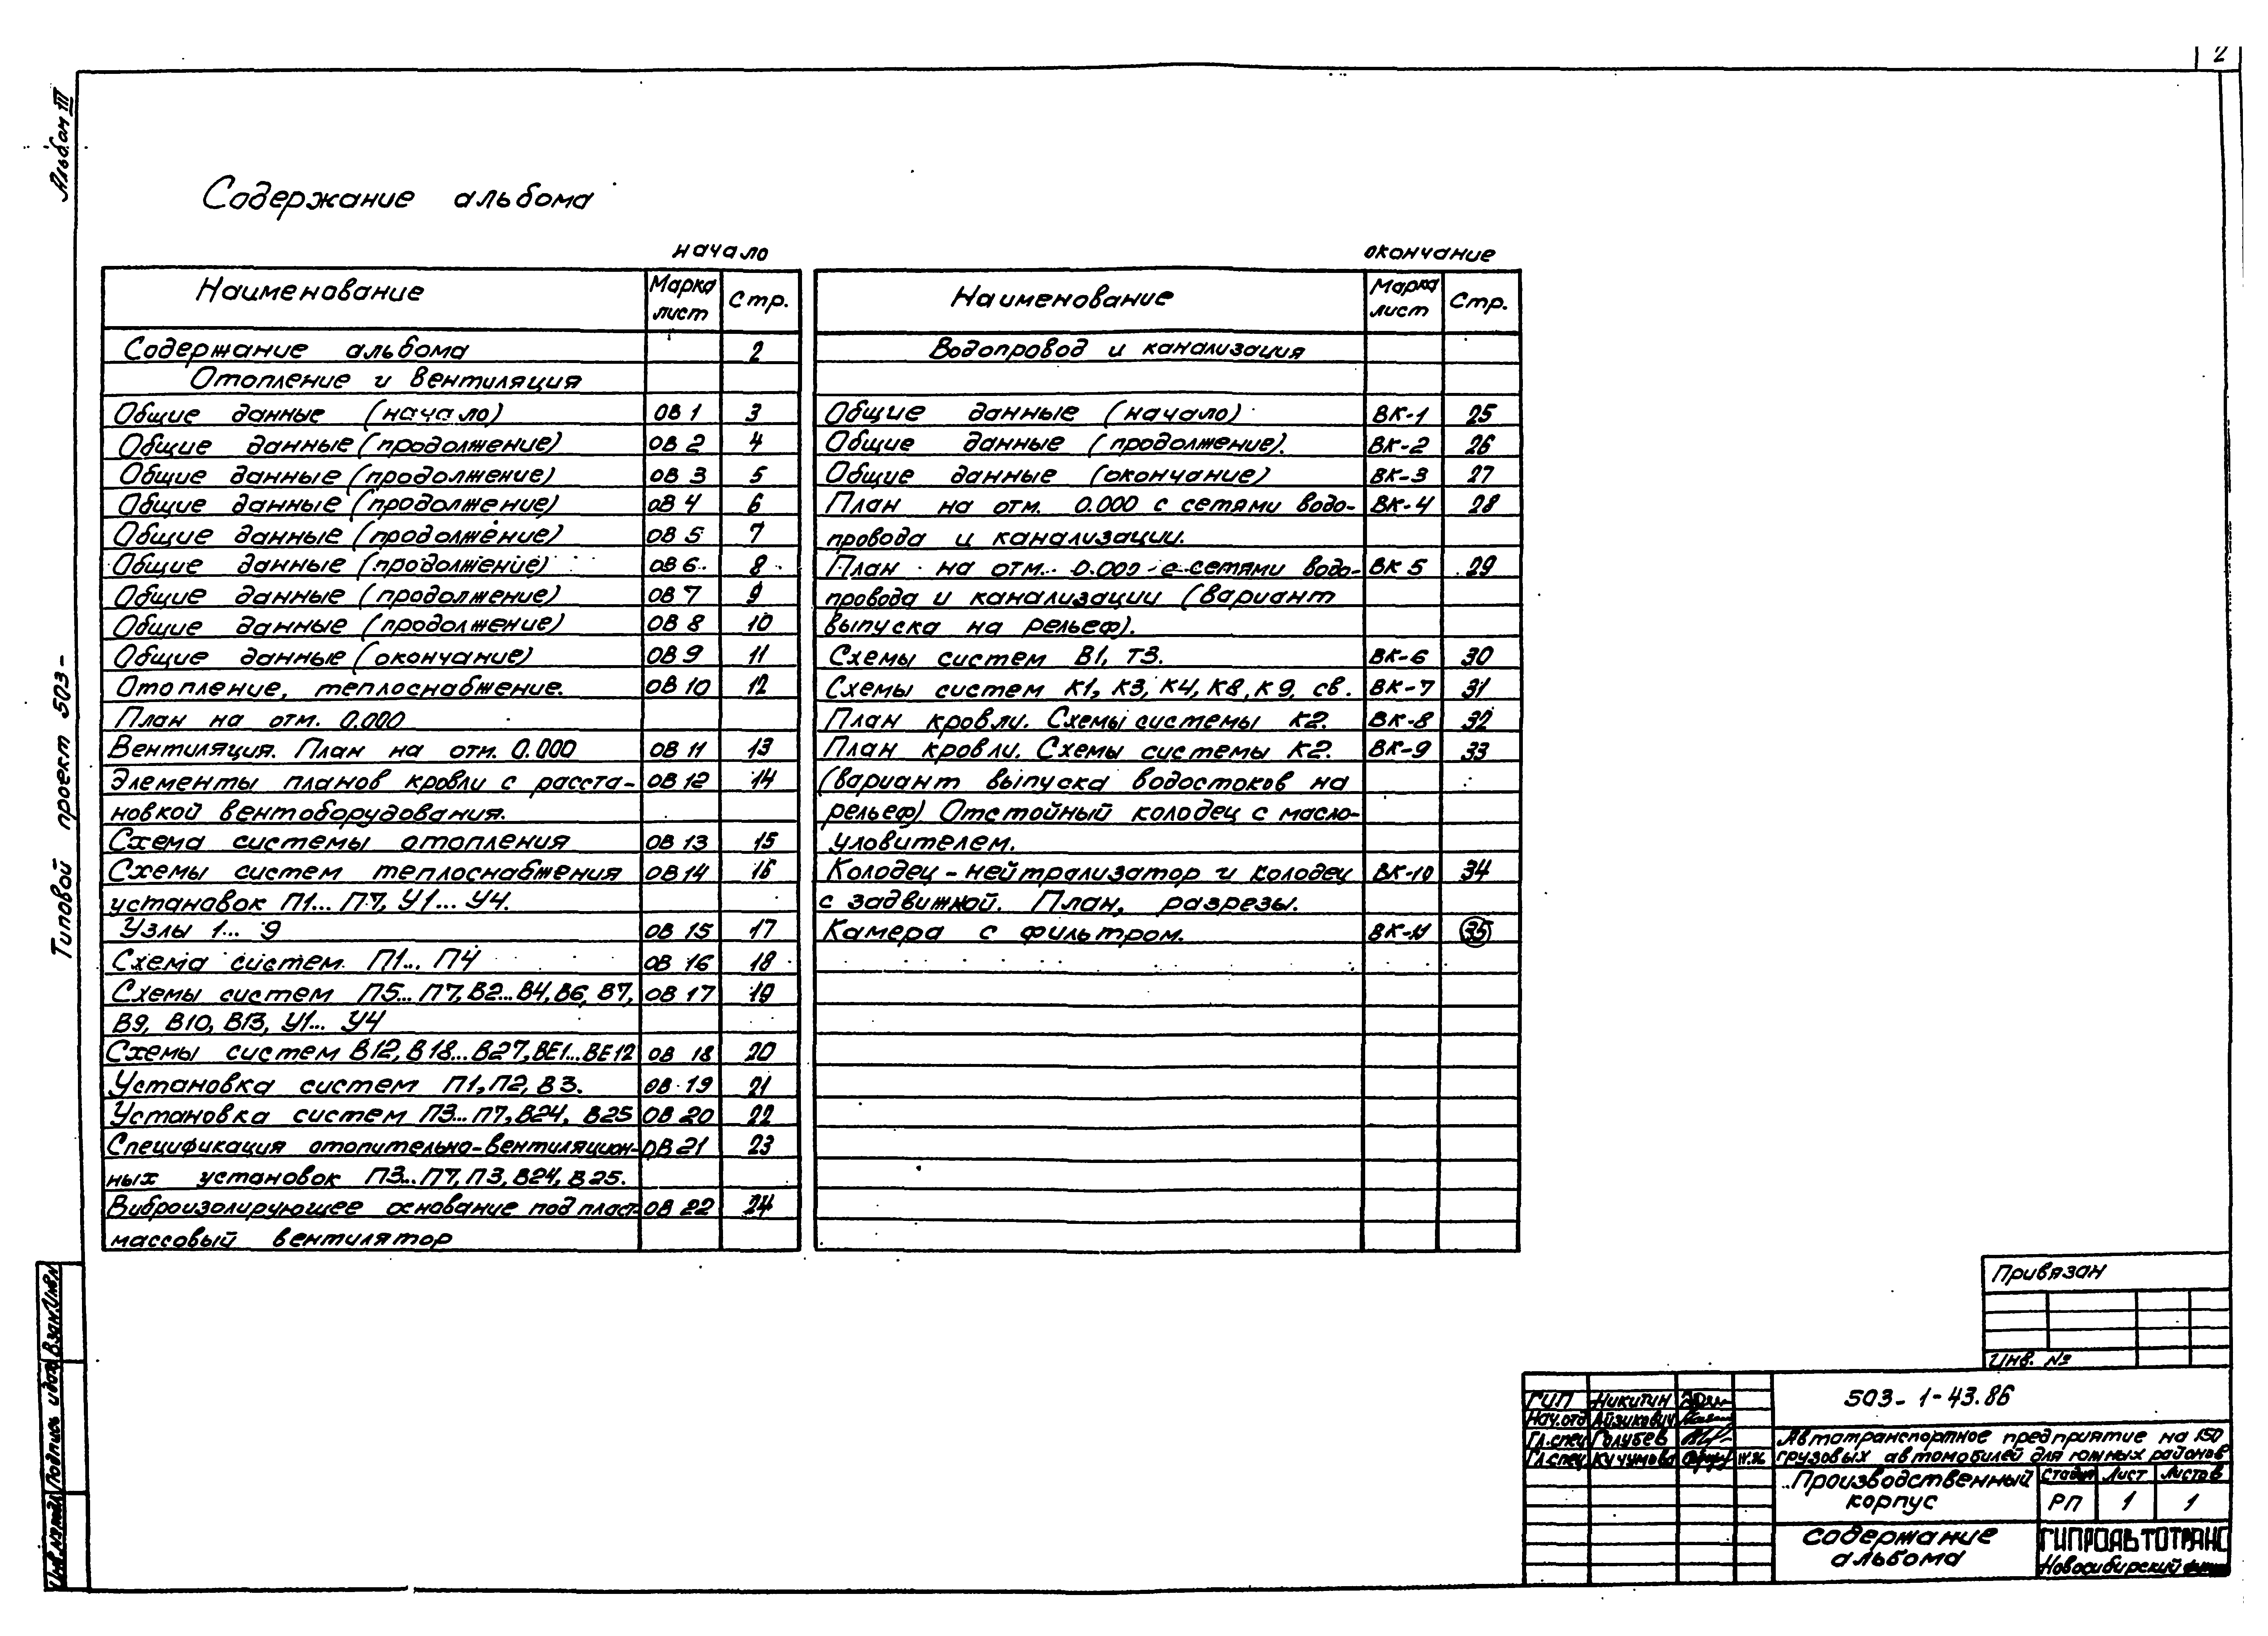 2
Альбом III
Типовой проект 503-
Содержание альбома
начало
Наименование Марка лист Стр.
Содержание альбома 2
Отопление и вентиляция
Общие данные (начало) ОВ 1 3
Общие данные (продолжение) ОВ 2 4
Общие данные (продолжение) ОВ 3 5
Общие данные (продолжение) ОВ 4 6
Общие данные (продолжение) ОВ 5 7
Общие данные (продолжение) ОВ 6 8
Общие данные (продолжение) ОВ 7 9
Общие данные (продолжение) ОВ 8 10
Общие данные (окончание) ОВ 9 11
Отопление, теплоснабжение. ОВ 10 12
План на отм. 0.000
Вентиляция. План на отм. 0.000 ОВ 11 13
Элементы планов кровли с расста- ОВ 12 14
новкой вентоборудования.
Схема системы отопления ОВ 13 15
Схемы систем теплоснабжения ОВ 14 16
установок П1... П7, У1... У4.
Узлы 1... 9 ОВ 15 17
Схема систем П1... П4 ОВ 16 18
Схемы систем П5... П7, В2...В4, В6, В7, ОВ 17 19
В9, В10, В13, У1... У4
Схемы систем В12, В18...В27, ВЕ1...ВЕ12 ОВ 18 20
Установка систем П1, П2, В3. ОВ 19 21
Установка систем П3...П7, В24, В25 ОВ 20 22
Спецификация отопительно-вентиляцион- ОВ 21 23
ных установок П3...П7, П3, В24, В25.
Виброизолирующее основание под пласт- ОВ 22 24
массовый вентилятор
окончание
Наименование Марка лист Стр.
Водопровод и канализация
Общие данные (начало) ВК-1 25
Общие данные (продолжение). ВК-2 26
Общие данные (окончание) ВК-3 27
План на отм. 0.000 с сетями водо- ВК-4 28
провода и канализации.
План на отм. 0.000 с сетями водо- ВК 5 29
провода и канализации (вариант
выпуска на рельеф).
Схемы систем В1, Т3. ВК-6 30
Схемы систем К1, К3, К4, К8, К9, св. ВК-7 31
План кровли. Схемы системы К2. ВК-8 32
План кровли. Схемы системы К2. ВК-9 33
(вариант выпуска водостоков на
рельеф) Отстойный колодец с масло-
уловителем.
Колодец-нейтрализатор и колодец ВК-10 34
с задвижной. План, разрезы.
Камера с фильтром. ВК-11 35
Привязан
Инв. №
ГИП Никитин
Нач.отд Айзикович
Гл.спец Голубев
Гл.спец Кучумова
503-1-43.86
Автотранспортное предприятие на 150
грузовых автомобилей для южных районов
Производственный
корпус
Стадия Лист Листов
РП 1 1
Содержание
альбома
ГИПРОАВТОТРАНС
Новосибирский
Взам.Инв.N
Подпись и дата
Инв.N подл.